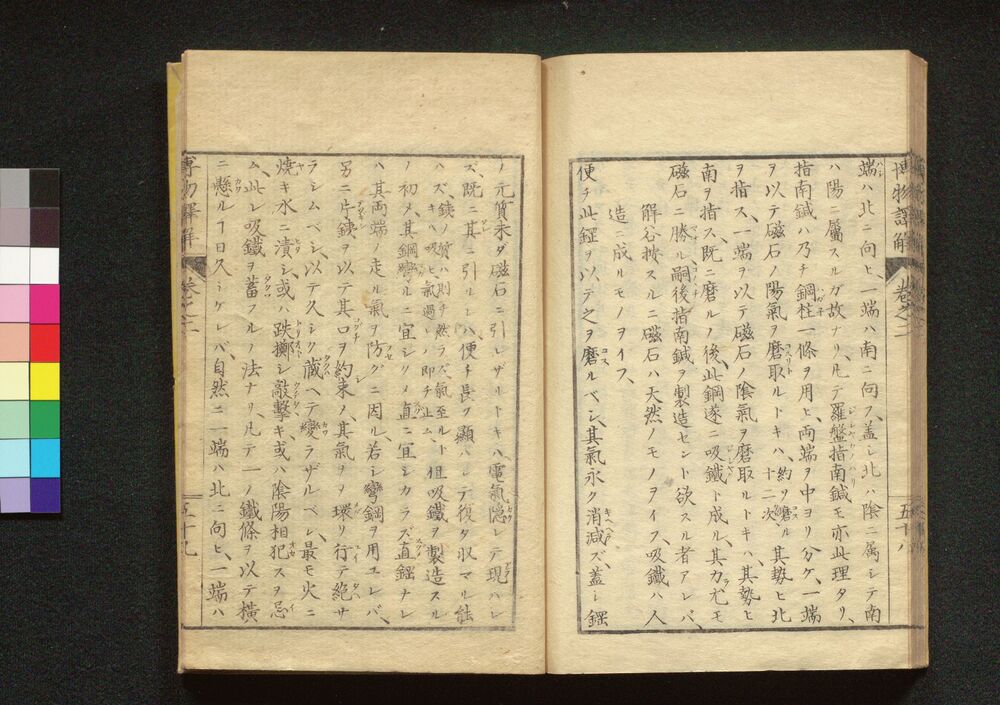 博物譯解 卷之二 五十八
端ハ北ニ向ヒ、一端ハ南ニ向フ、蓋シ北ハ陰ニ屬シテ南
ハ陽ニ屬スルガ故ナリ、凡テ羅盤指南鍼モ亦此理タリ、
指南鍼ハ乃チ鋼柱一條ヲ用ヒ、両端ヲ中ヨリ分ケ、一端
ヲ以テ磁石ノ陽氣ヲ磨取ルトキハ、約ヲ磨ル十二次、其勢ヒ北
ヲ指ス、一端ヲ以テ磁石ノ陰氣ヲ磨取ルトキハ、其勢ヒ
南ヲ指ス、既ニ磨ルノ後、此鋼遂ニ吸鐵ト成ル、其力尤モ
磁石ニ勝ル、嗣後指南鍼ヲ製造セント欲スル者アレバ、
便チ此鑼ヲ以テ之ヲ磨ルベシ、其氣永ク消減ズ、蓋シ鑼
解谷按スルニ磁石ハ天然ノモノヲイフ、吸鐵ハ人
造ニ成ルモノヲイフ、
ノ元質未ダ磁石ニ引レザリトキハ、電氣隱レテ現ハレ
ズ、既ニ其ニ引レハ、便チ長ク顯ハレテ復タ収マル能
ハズ、鉄ノ質ハ則チ然ラズ、氣至ルトキハ吸ヒ、氣過レハ即チ止ム、但吸鐵ヲ製造スル
ノ初メ、其鋼彎ルニ宜シクノ直ニ宜シカラズ、直鋼ナレ
ハ其両端ク走ル氣ヲ防グニ因ル、若シ彎鋼ヲ用ユレバ、
另ニ片鉄ヲ以テ其口ヲ約束ノ、其氣ヲノ環リ行テ絶サ
ラシムベシ、以テ久シク藏ヘテ變ラザルベシ、最モ火ニ
燒キ水ニ漬シ、或ハ跌擲シ敲擊キ、或ハ陰陽相犯スヲ忌
ム、此レ吸鐵ヲ蓄フルノ法ナリ、凡テ一ノ鐵條ヲ以テ横
ニ懸ルヿ日久シケレバ、自然ニ一端ハ北ニ向ヒ、一端ハ
博物譯解 卷之二 五十九